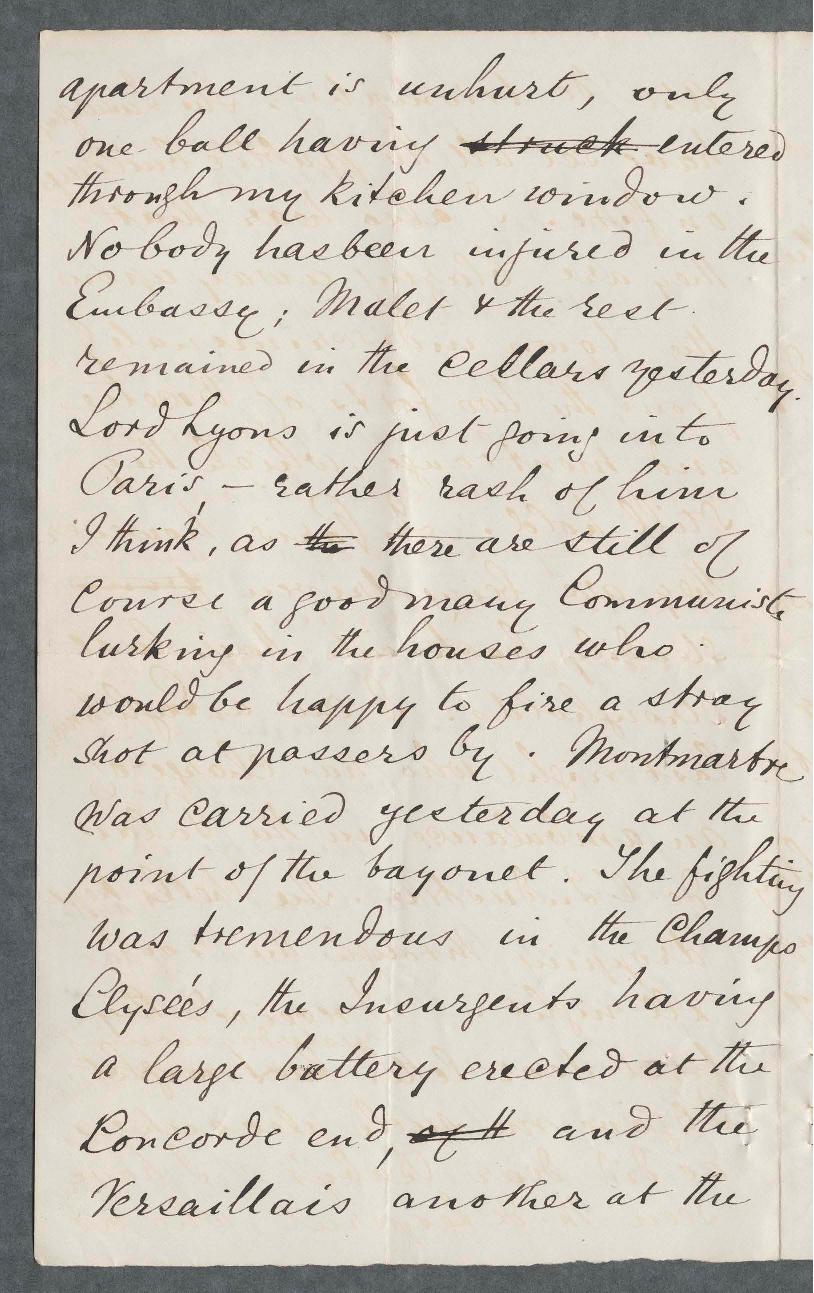 apartment is unhurt, only
one ball having struck entered
through my kitchen window.
Nobody has been injured in the
Embassy; Malet & the rest
remained in the cellars yesterday.
Lord Lyons is just going into
Paris, – rather rash of him
I think, as the there are still of
course a good many Communists
lurking in the houses who
would be happy to fire a stray
shot at passers by. Montmartre
was carried yesterday at the
point of the bayonet. The fighting
was tremendous in the Champs
Elyseés, the Insurgents having
a large battery erected at the
Concorde end, of th and the
Versaillais another at the